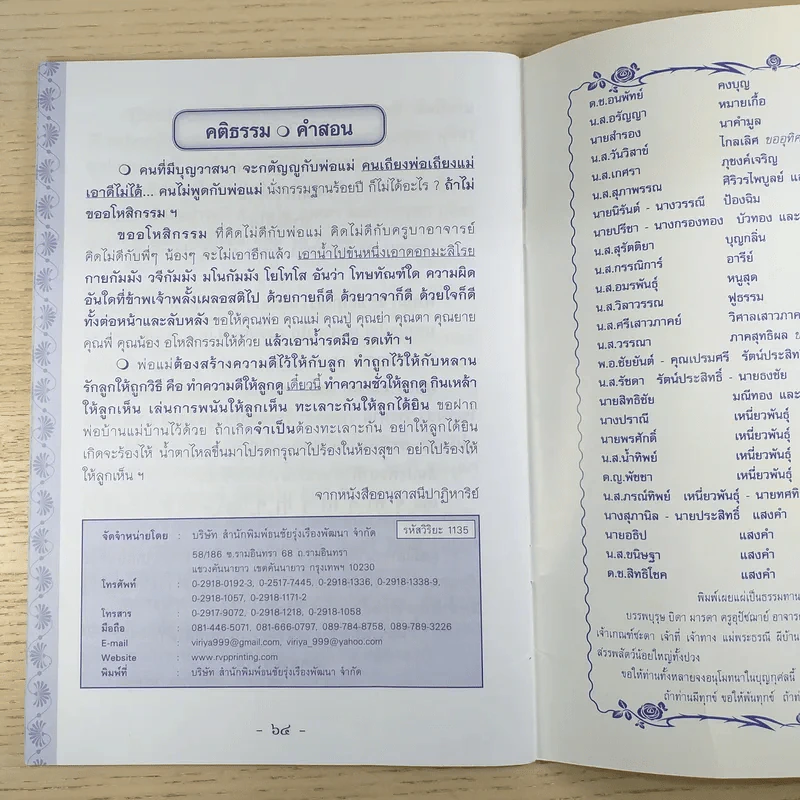 คติธรรม ❍ คำสอน
❍ คนที่มีบุญวาสนา จะกตัญญูกับพ่อแม่ คนเถียงพ่อเถียงแม่
เอาดีไม่ได้... คนไม่พูดกับพ่อแม่ นั่งกรรมฐานร้อยปี ก็ไม่ได้อะไร ? ถ้าไม่
ขออโหสิกรรม ฯ
ขออโหสิกรรม ที่คิดไม่ดีกับพ่อแม่ คิดไม่ดีกับครูบาอาจารย์
คิดไม่ดีกับพี่ๆ น้องๆ จะไม่เอาอีกแล้ว เอาน้ำไปขันหนึ่งเอาดอกมะลิโรย
กายกัมมัง วจีกัมมัง มโนกัมมัง โยโทโส อันว่า โทษทัณฑ์ใด ความผิด
อันใดที่ข้าพเจ้าพลั้งเผลอสติไป ด้วยกายก็ดี ด้วยวาจาก็ดี ด้วยใจก็ดี
ทั้งต่อหน้าและลับหลัง ขอให้คุณพ่อ คุณแม่ คุณปู่ คุณย่า คุณตา คุณยาย
คุณพี่ คุณน้อง อโหสิกรรมให้ด้วย แล้วเอาน้ำรดมือ รดเท้า ฯ
❍ พ่อแม่ต้องสร้างความดีไว้ให้กับลูก ทำถูกไว้ให้กับหลาน
รักลูกให้ถูกวิธี คือ ทำความดีให้ลูกดู เดี๋ยวนี้ ทำความชั่วให้ลูกดู กินเหล้า
ให้ลูกเห็น เล่นการพนันให้ลูกเห็น ทะเลาะกันให้ลูกได้ยิน ขอฝาก
พ่อบ้านแม่บ้านไว้ด้วย ถ้าเกิดจำเป็นต้องทะเลาะกัน อย่าให้ลูกได้ยิน
เกิดจะร้องไห้ น้ำตาไหลขึ้นมาโปรดกรุณาไปร้องในห้องสุขา อย่าไปร้องไห้
ให้ลูกเห็น ฯ
จากหนังสืออนุสาสนีปาฏิหาริย์
จัดจำหน่ายโดย : บริษัท สำนักพิมพ์ธนชัยรุ่งเรืองพัฒนา จำกัด รหัสวิริยะ 1135
58/186 ซ.รามอินทรา 68 ถ.รามอินทรา
แขวงคันนายาว เขตคันนายาว กรุงเทพฯ 10230
โทรศัพท์ : 0-2918-0192-3, 0-2517-7445, 0-2918-1336, 0-2918-1338-9,
0-2918-1057, 0-2918-1171-2
โทรสาร : 0-2917-9072, 0-2918-1218, 0-2918-1058
มือถือ : 081-446-5071, 081-666-0797, 089-784-8758, 089-789-3226
E-mail : viriya999@gmail.com, viriya_999@yahoo.com
Website : www.rvpprinting.com
พิมพ์ที่ : บริษัท สำนักพิมพ์ธนชัยรุ่งเรืองพัฒนา จำกัด
- ๖๔ -
ด.ช.อนิพัทย์ คงบุญ
น.ส.อรัญญา หมายเกื้อ
นายสำรอง นาคำมูล
น.ส.วันวิสาข์ ไกลเลิศ ขออุทิศ
น.ส.เกศรา ภุชงค์เจริญ
น.ส.สุภาพรรณ ศิริวรไพบูลย์ และ
นายนิรันต์ - นางวรรณี ป้องฉิม
นายปรีชา - นางกรองทอง บัวทอง และ
น.ส.สุรัตติยา บุญกลิ่น
น.ส.กรรณิการ์ อารีย์
น.ส.อมรพันธุ์ หนูสุด
น.ส.วิลาวรรณ ฟูธรรม
น.ส.ศรีเสาวภาคย์ วิศาลเสาวภาคย์
น.ส.วรรณา ภาคสุทธิผล
พ.อ.ชัยยันต์ - คุณเปรมศรี รัตน์ประสิทธิ์
น.ส.รัชดา รัตน์ประสิทธิ์ - นายธงชัย
นายสิทธิชัย มณีทอง และ
นางปราณี เหนี่ยวพันธุ์
นายพรศักดิ์ เหนี่ยวพันธุ์
น.ส.น้ำทิพย์ เหนี่ยวพันธุ์
ด.ญ.พัชชา เหนี่ยวพันธุ์
น.ส.ภรณ์ทิพย์ เหนี่ยวพันธุ์ - นายทศทิ
นางสุภานิล - นายประสิทธิ์ แสงคำ
นายอธิป แสงคำ
น.ส.ขนิษฐา แสงคำ
ด.ช.สิทธิโชค แสงคำ
พิมพ์เผยแผ่เป็นธรรมทาน
บรรพบุรุษ บิดา มารดา ครูอุปัชฌาย์ อาจาร
เจ้าเกณฑ์ชะตา เจ้าที่ เจ้าทาง แม่พระธรณี ผีบ้าน
สรรพสัตว์น้อยใหญ่ทั้งปวง
ขอให้ท่านทั้งหลายจงอนุโมทนาในบุญกุศลนี้
ถ้าท่านมีทุกข์ ขอให้พ้นทุกข์ ถ้าท่า